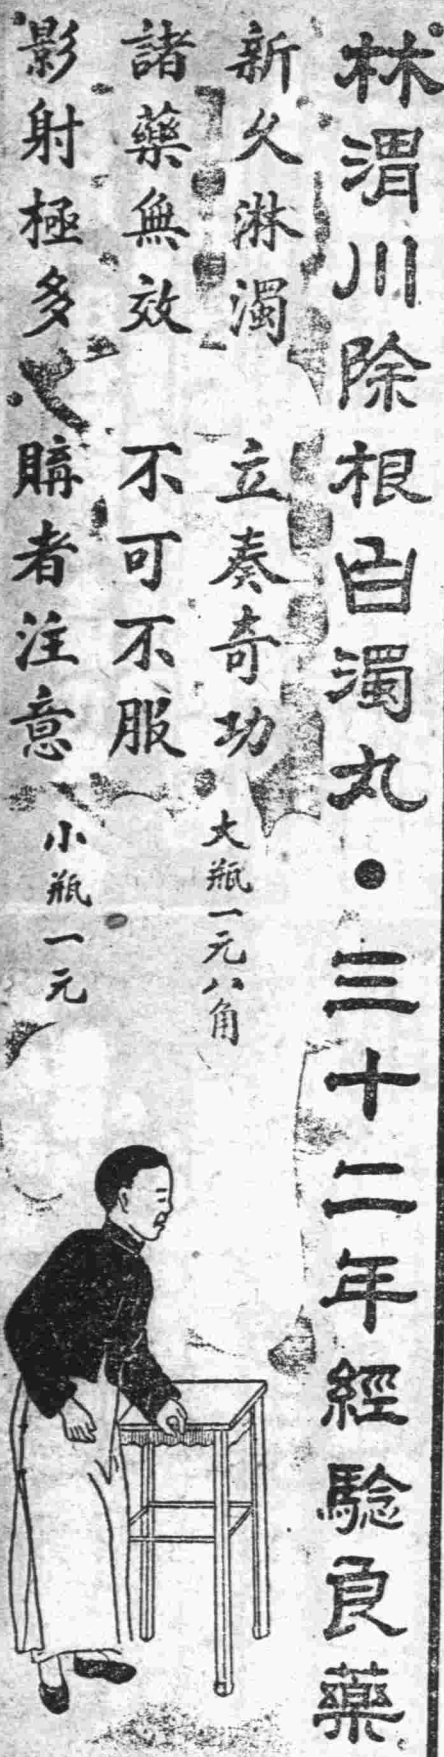 林渭川除根白濁丸・三十二年經驗良藥
新久淋濁 立奏奇功
大瓶一元八角
諸藥無效 不可不服
影射極多 購者注意
小瓶一元